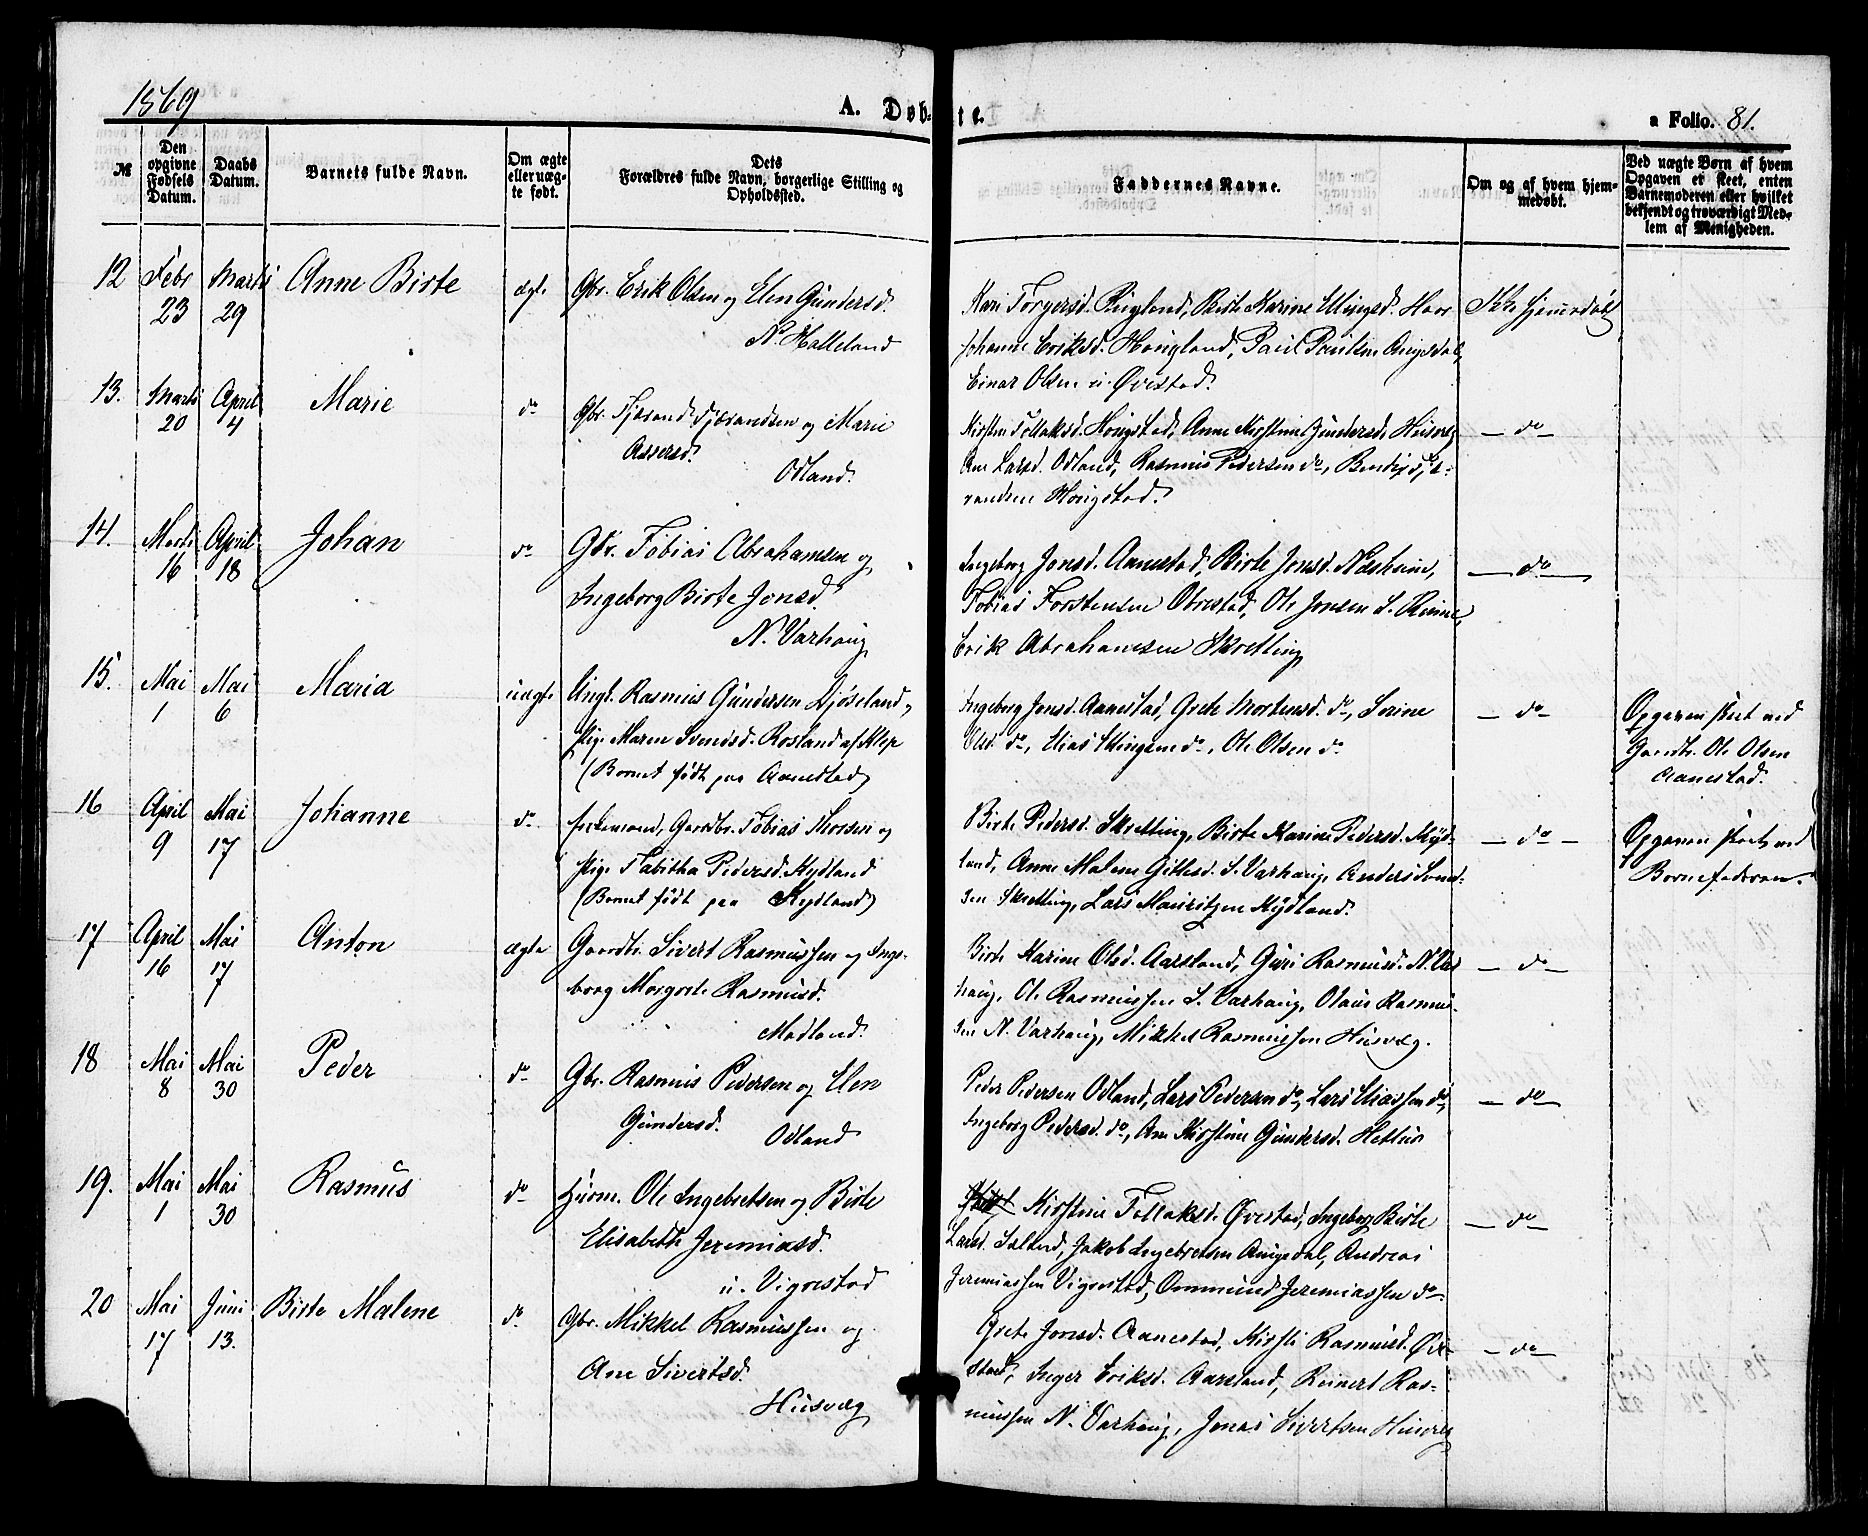 1869
A. Døb- te.
a Folio. 81.
№
Den opgivne Fødsels Datum.
Daabs Datum.
Barnets fulde Navn.
Om ægte eller uæg- te født.
Dets Forældres fulde Navn, borgerlige Stilling og Opholdssted.
Faddernes Navne.
Om og af hvem hjem- medøbt.
Ved uægte Børn af hvem Opgaven er skeet, enten Barnemoderen eller hvilket bekjendt og troværdigt Med- lem af Menigheden.
12 Febr 23 Marts 29 Anne Birte ægte Gbr. Erik Olsen og Elen Gundersd.
N. Halleland
Mari Torgersd. Birte Karine
Johanne Eriksd. Hougland, Paul Paulsen
Einar Olsen u. Øvestad.
Ikke hjemmedøbt
13. Marts 20 April 4 Marie do Gbr. og Marie
Assersd.
Odland.
Kirsten Tollaksd. Hougstad, Anne Kirstine Gundersd. Husveg
Ane Larsd. Odland, Rasmus Pedersen do,
Hougstad.
— do —
14. Marts 16 April 18 Johan do Gbr. Tobias Abrahamsen og
Ingeborg Birte Jonsd.
N. Varhaug
Ingeborg Jonsd. Aanestad, Birte Jonsd. Næsheim,
Tobias Torstensen Obrestad, Ole Jonsen S.
Erik Abrahamsen Skretting
— do —
15. Mai 1 Mai 6 Maria uægte Ungk. Rasmus Gundersen
Pige Maren Svendsd. Rosland af Klep
(Barnet født paa Aanestad)
Ingeborg Jonsd. Aanestad, Grete Mortensd. do, Serine
Olsd. do, Elias do, Ole Olsen do
— do —
Opgaven skeet ved
Gaardbr. Ole Olsen
Aanestad.
16 April 9 Mai 17 Johanne do Enkemand, Gaardbr. Tobias Thorsen og
Pige Tabitha Pedersd. Kydland
(Barnet født paa Kydland)
Birte Pedersd. Skretting, Birte Karine Pedersd. Kyd-
land, Anne Malene S. Varhaug, Anders Svend-
sen Skretting, Lars Mauritzen Kydland.
— do —
Opgaven skeet ved
Barnefaderen.
17 April 16 Mai 17 Anton ægte Gaardbr. Sivert Rasmussen og Inge-
borg Margrete Rasmusd.
Madland.
Birte Karine Olsd. Aarsland, Guri Rasmusd. N. Var
haug, Ole Rasmussen S. Varhaug, Olaus Rasmus-
sen N. Varhaug, Mikkel Rasmussen Husveg.
— do —
18 Mai 8 Mai 30 Peder do Gbr. Rasmus Pedersen og Elen
Gundersd. Odland
Peder Pedersen Odland, Lars Pedersen do, Lars Eliassen do,
Ingeborg Pedersd. do, Ane Kirstine Gundersd.
— do —
19. Mai 1 Mai 30 Rasmus do Huusm. Ole Ingebretsen og Birte
Elisabeth Jeremiasd.
u. Vigrestad
Kirstine Tollaksd. Øvestad, Ingeborg Birte
Larsd. Jakob Ingebretsen Andreas
Jeremiassen Vigrestad, Ommund Jeremiassen do.
— do —
20 Mai 17 Juni 13. Birte Malene do Gbr. Mikkel Rasmussen og
Ane Sivertsd.
Husveg
Grete Jonsd. Aanestad, Kirsti Rasmusd. Øve-
stad, Inger Eriksd. Aarsland, Reinert Ras-
mussen N. Varhaug, Jonas Sivertsen Husveg
— do —